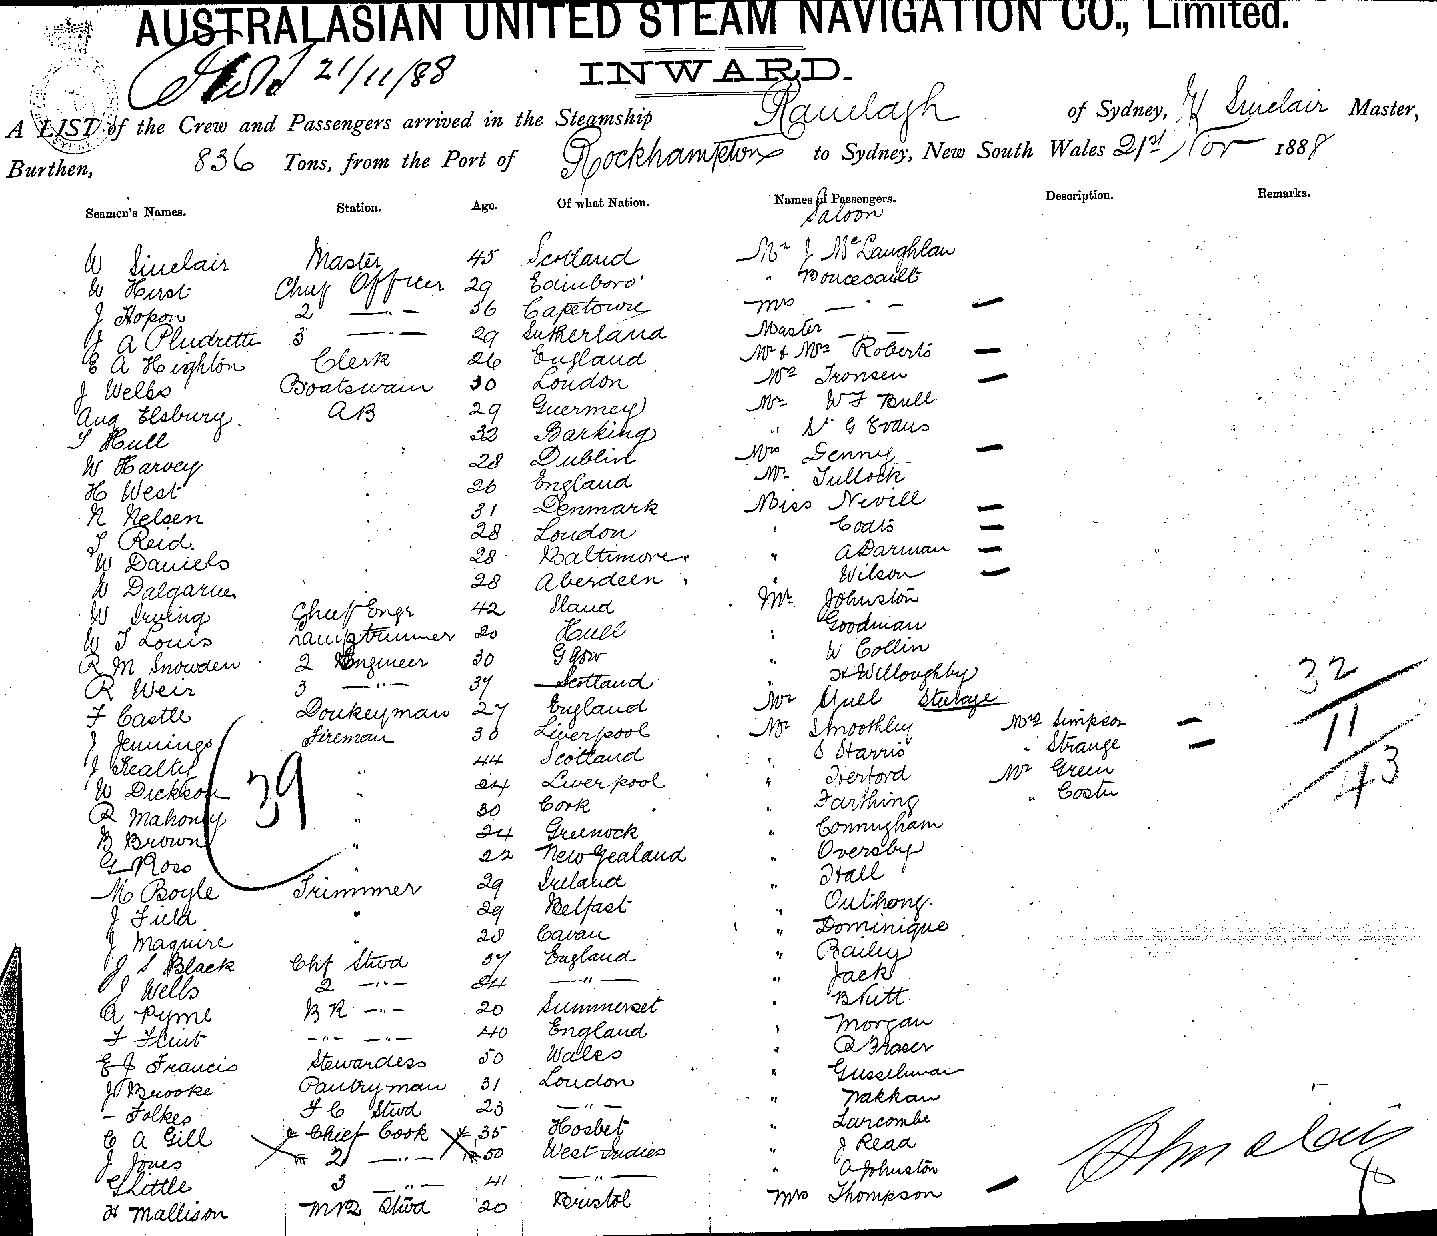 AUSTRALASIAN UNITED STEAM NAVIGATION CO., Limited.
21/11/88
INWARD.
A LIST of the Crew and Passengers arrived in the Steamship Ranelagh of Sydney, W Sinclair Master,
Burthen, 836 Tons, from the Port of Rockhampton to Sydney, New South Wales 21st Nov 1888
Seamen's Names. Station. Age. Of what Nation. Names of Passengers. Description. Remarks.
Saloon
W Sinclair Master 45 Scotland Mr J McLaughlan
W Hirst Chief Officer 29 Edinboro' " Boucecault
J Hopon 2 —"— 36 Capetown Mrs — " —
J A Pludrette 3 —"— 29 Sutherland Master — " —
E A Highton Clerk 26 England Mr & Mrs Roberts
J Wells Boatswain 30 London Mrs Ironsen
Aug Elsbury AB 29 Guernsey Mr W F Bull
T Hull 32 Barking " St G Evans
W Harvey 28 Dublin Mrs Denny
H West 26 England Mr Tullock
N Nelsen 31 Denmark Miss Nevill
T Reid 28 London " Codts
W Daniels 28 Baltimore " A Darman
W Dalgarne 28 Aberdeen " Wilson
W Irving Chief Engr 42 Mr Johnston
W T Louis Lamptrimmer 20 Hull " Goodman
R M Snowden 2 Engineer 30 Glgow " W Collin
R Weir 3 —"— 37 Scotland " H Willoughby
F Castle Donkeyman 27 England Mr Yuel Steerage
J Jennings Fireman 30 Liverpool Mr Smoothley Mrs Simpson
J Fealty " 44 Scotland " S Harris " Strange
W Dickson " 24 Liverpool " Hertford Mr Green
R Mahony " 30 Cork " Farthing " Coster
B Brown " 24 Greenock " Conningham
G Ross " 22 New Zealand " Oversby
M Boyle Trimmer 29 Ireland " Hall
J Field " 29 Belfast " Outhong
J Maguire " 28 Cavan " Dominique
J S Black Chf Stwd 37 England " Bailey
J Wells 2 —"— 24 —"— " Jack
A Pyme BR —"— 20 Summerset " B Hutt
F Flint —"— —"— 40 England " Morgan
E J Francis Stewardess 50 Wales " R Fraser
J Brooke Pantryman 31 London " Gusselman
— Folkes F C Stwd 23 —"— " Nakhan
C A Gill Chief Cook 35 Hosbet " Larcombe
J Jones 2 —"— 50 West Indies " J Read
G Little 3 —"— 41 —"— " A Johnston
H Mallison MRS Stwd 20 Bristol Mrs Thompson
39
32
11
43
W Sinclair